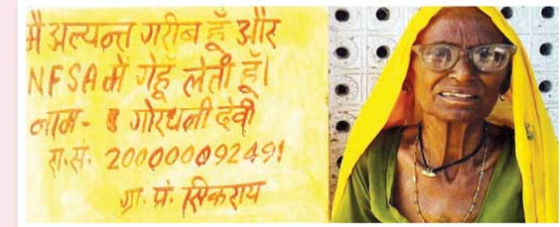 मै अत्यन्त गरीब हूँ और
NFSA में गेहूँ लेती हूँ।
नाम - गोरधली देवी
रा.सं. 200000092491
ग्रा. पं. सिकराय